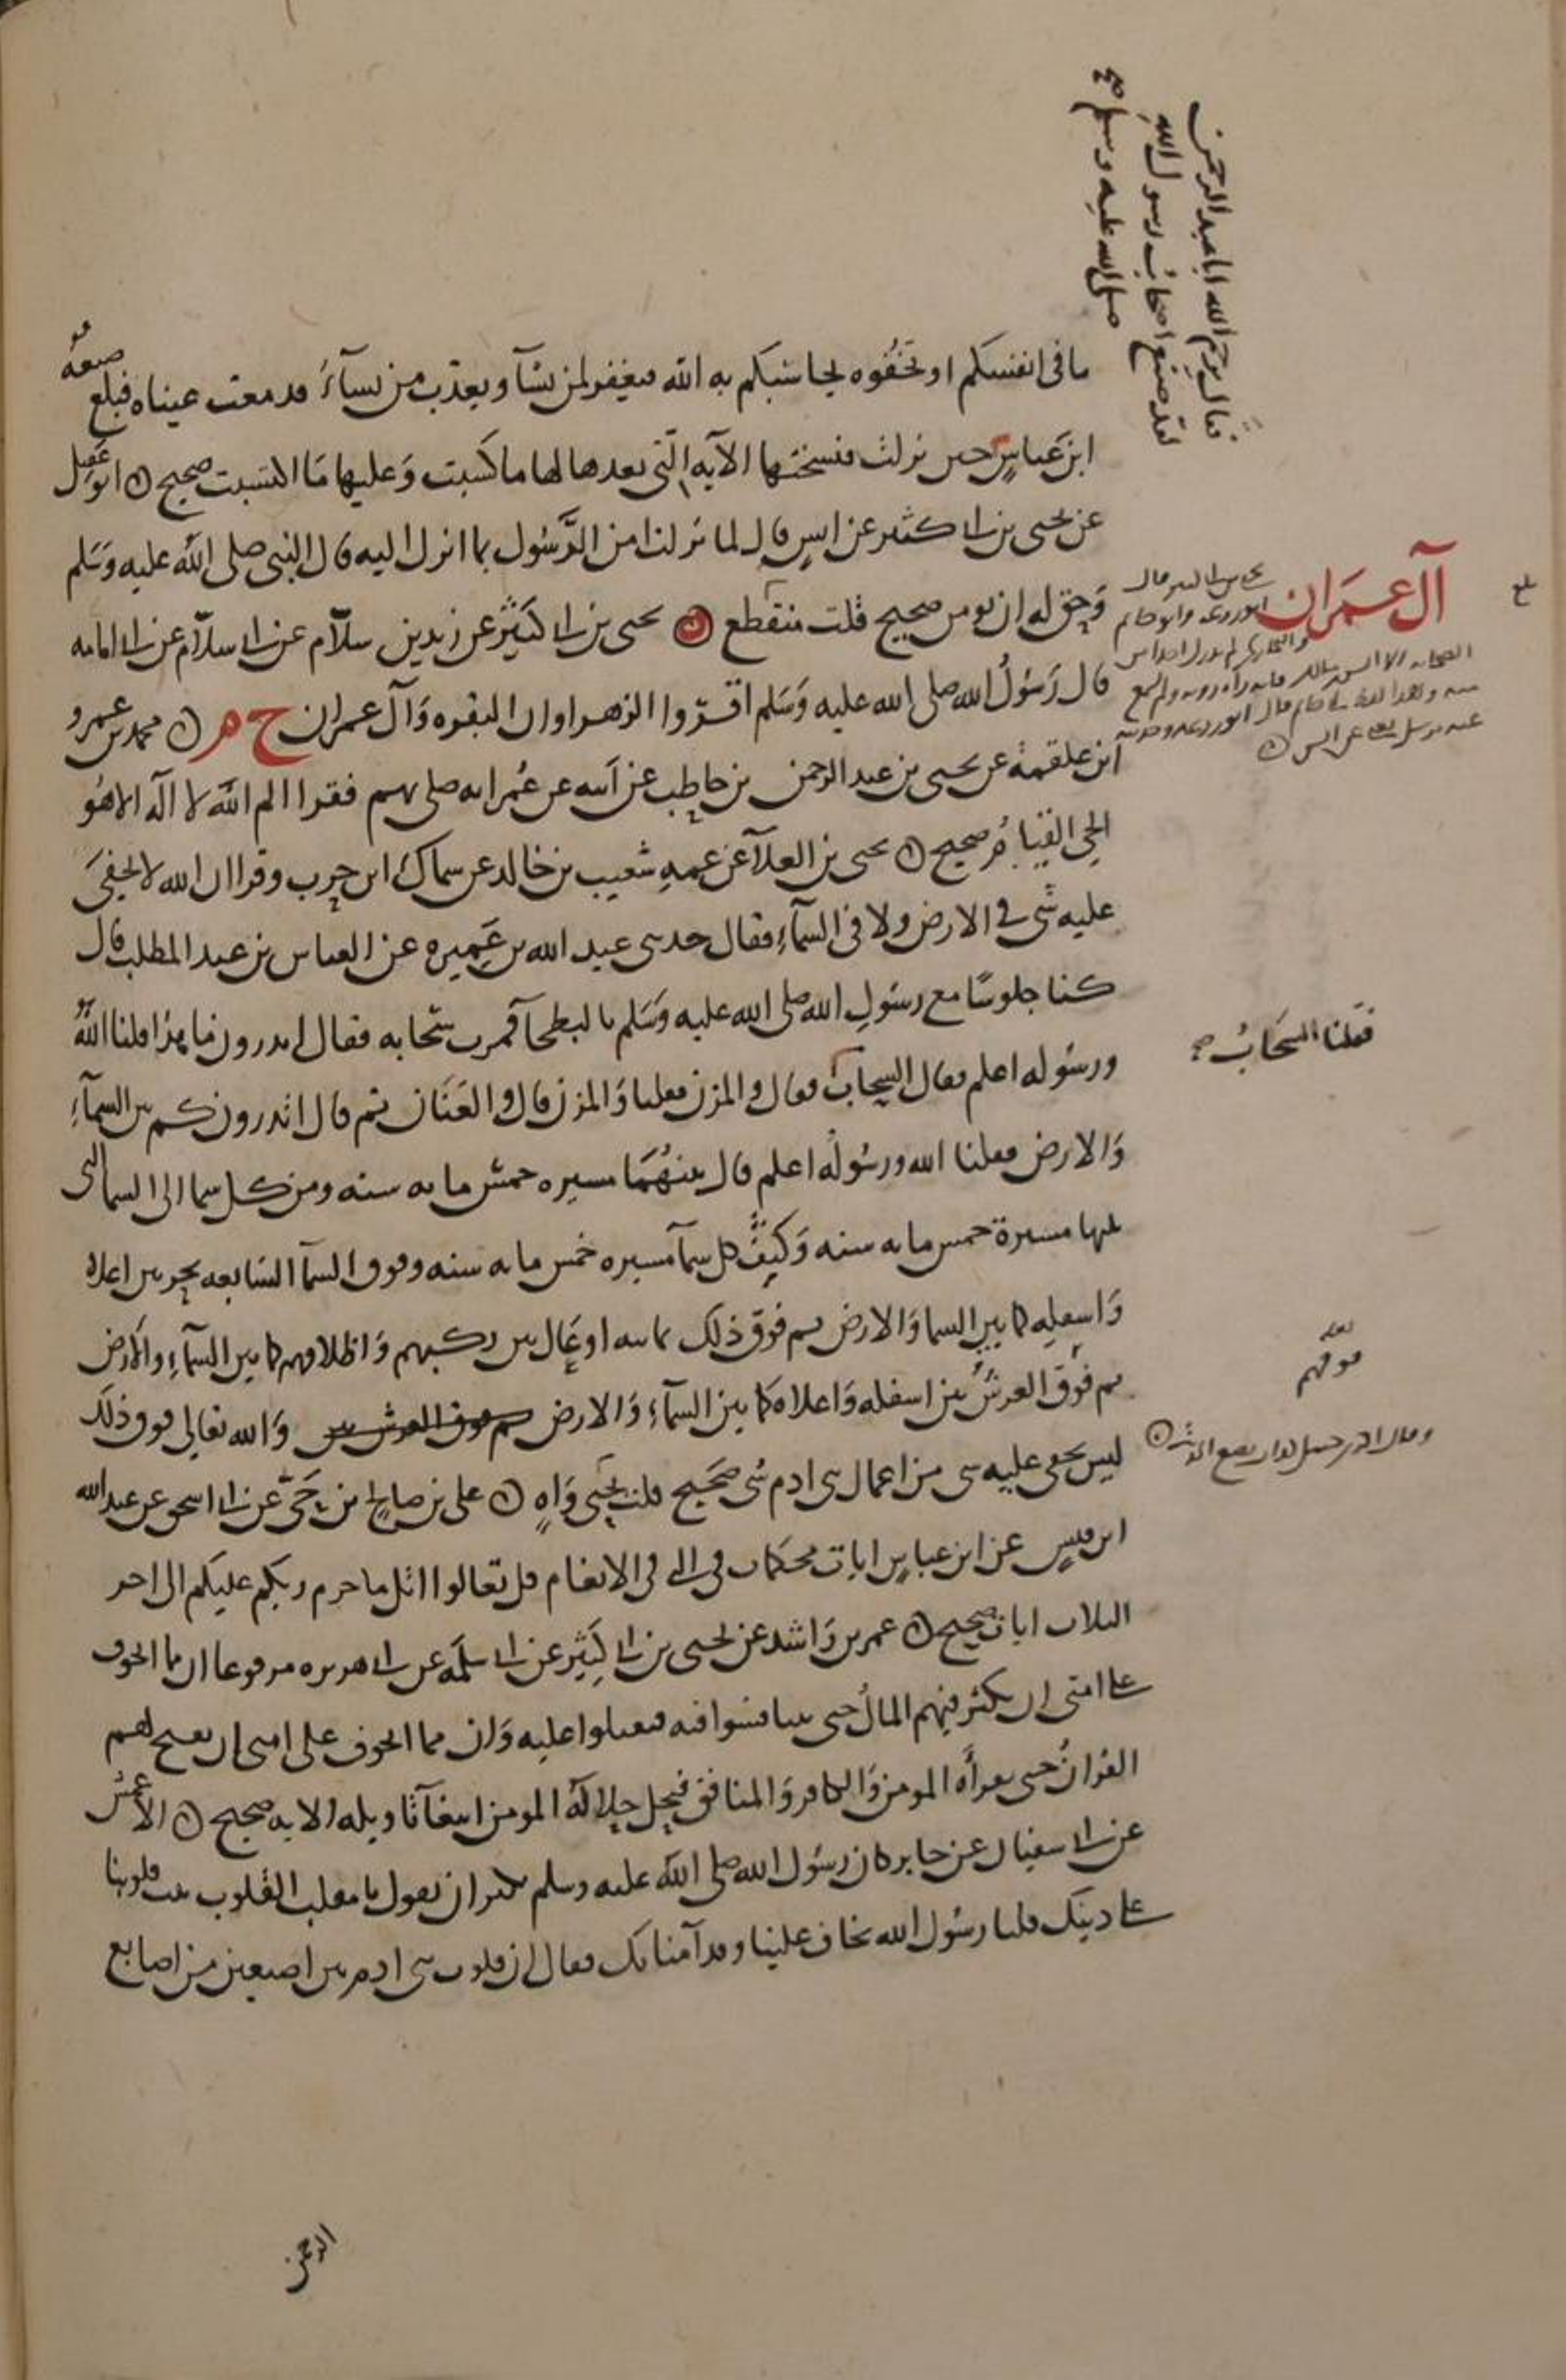 ما في انفسكم او تخفوه يحاسبكم به الله فيغفر لمن يشآ ويعذب من يسآء فدمعت عيناه فبلغ صنعه
فقال يرحم الله ابا عبد الرحمن
لقد صنع اصحاب رسول الله
صلى الله عليه وسلم صح
ابن عباس حين نزلت فنسختها الآيه التي بعدها لها ما كسبت وعليها ما اكتسبت صحيح ابو عقيل
عن يحيى بن ابي كثير عن انس قال لما نزلت امن الرسول بما انزل اليه قال النبي صلى الله عليه وسلم
وحق له ان يومن صحيح قلت منقطع
آل عمران
بلغ
يحيى بن ابي كثير عن زيد بن سلام عن ابي سلام عن ابي امامه
قال رسول الله صلى الله عليه وسلم اقرؤا الزهراوان البقره وآل عمران خ م محمد بن عمرو
ابن علقمة عن يحيى بن عبد الرحمن بن حاطب عن ابيه عن عمر انه صلى بهم فقرا الم الله لا اله الا هو
الحي القيام صحيح يحيى بن العلآ عن عمه شعيب بن خالد عن سماك ابن حرب وقرا ان الله لا يخفى
عليه شي في الارض ولا في السمآء فقال حدثني عبد الله بن عميره عن العباس بن عبد المطلب قال
كنا جلوسا مع رسول الله صلى الله عليه وسلم بالبطحآ فمرت سحابه فقال اتدرون ما هذا قلنا الله
ورسوله اعلم فقال السحاب فقال والمزن فقلنا والمزن قال والعنان ثم قال اتدرون كم بين السمآء
فقلنا السحاب صح
والارض فقلنا الله ورسوله اعلم قال بينهما مسيره خمس مايه سنه ومن كل سما الى السما التي
تليها مسيرة خمس مايه سنه وكيف كل سمآ مسيره خمس مايه سنه وفوق السمآ السابعه بحر بين اعلاه
واسفله كما بين السما والارض ثم فوق ذلك ثمانيه اوعال بين ركبهم واظلافهم كما بين السمآء والارض
لعله
فوقهم
ثم فوق العرش بين اسفله واعلاه كما بين السمآء والارض ثم فوق العرش بين والله تعالى فوق ذلك
ليس يخفى عليه شي من اعمال بني ادم شي صحيح قلت يحيى واه علي بن صالح بن حي عن ابي اسحق عن عبد الله
ابن قيس عن ابن عباس ايات محكمات هي التي في الانعام قل تعالوا اتل ما حرم ربكم عليكم الى اخر
الثلاث ايات صحيح عمر بن راشد عن يحيى بن ابي كثير عن ابي سلمه عن ابي هريره مرفوعا ان مما اتخوف
على امتي ان يكثر فيهم المال حتى يتنافسوا فيه فيقتتلوا عليه وان مما اتخوف على امتي ان يفتح لهم
القران حتى يقرأه المومن والكافر والمنافق فيحل حلاله المومن ابتغآ تاويله الايه صحيح الاعمش
عن ابي سفيان عن جابر كان رسول الله صلى الله عليه وسلم يكثر ان يقول يا مقلب القلوب ثبت قلوبنا
على دينك قلنا رسول الله تخاف علينا وقد آمنا بك فقال ان قلوب بني ادم بين اصبعين من اصابع
الرحمن